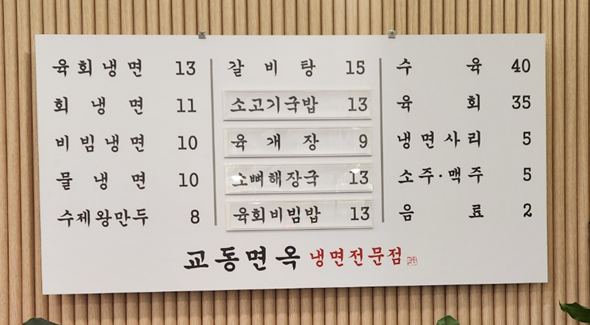 육회냉면 13
회냉면 11
비빔냉면 10
물냉면 10
수제왕만두 8
갈비탕 15
소고기국밥 13
육개장 9
소뼈해장국 13
육회비빔밥 13
수육 40
육회 35
냉면사리 5
소주·맥주 5
음료 2
교동면옥 냉면전문점